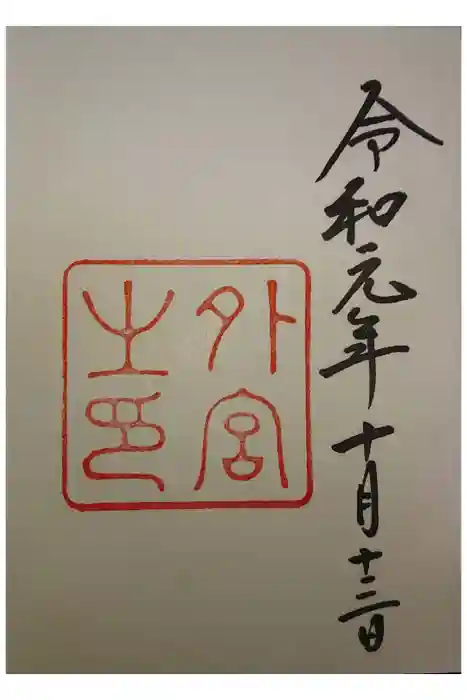 令和元年十月十二日
外宮
之印